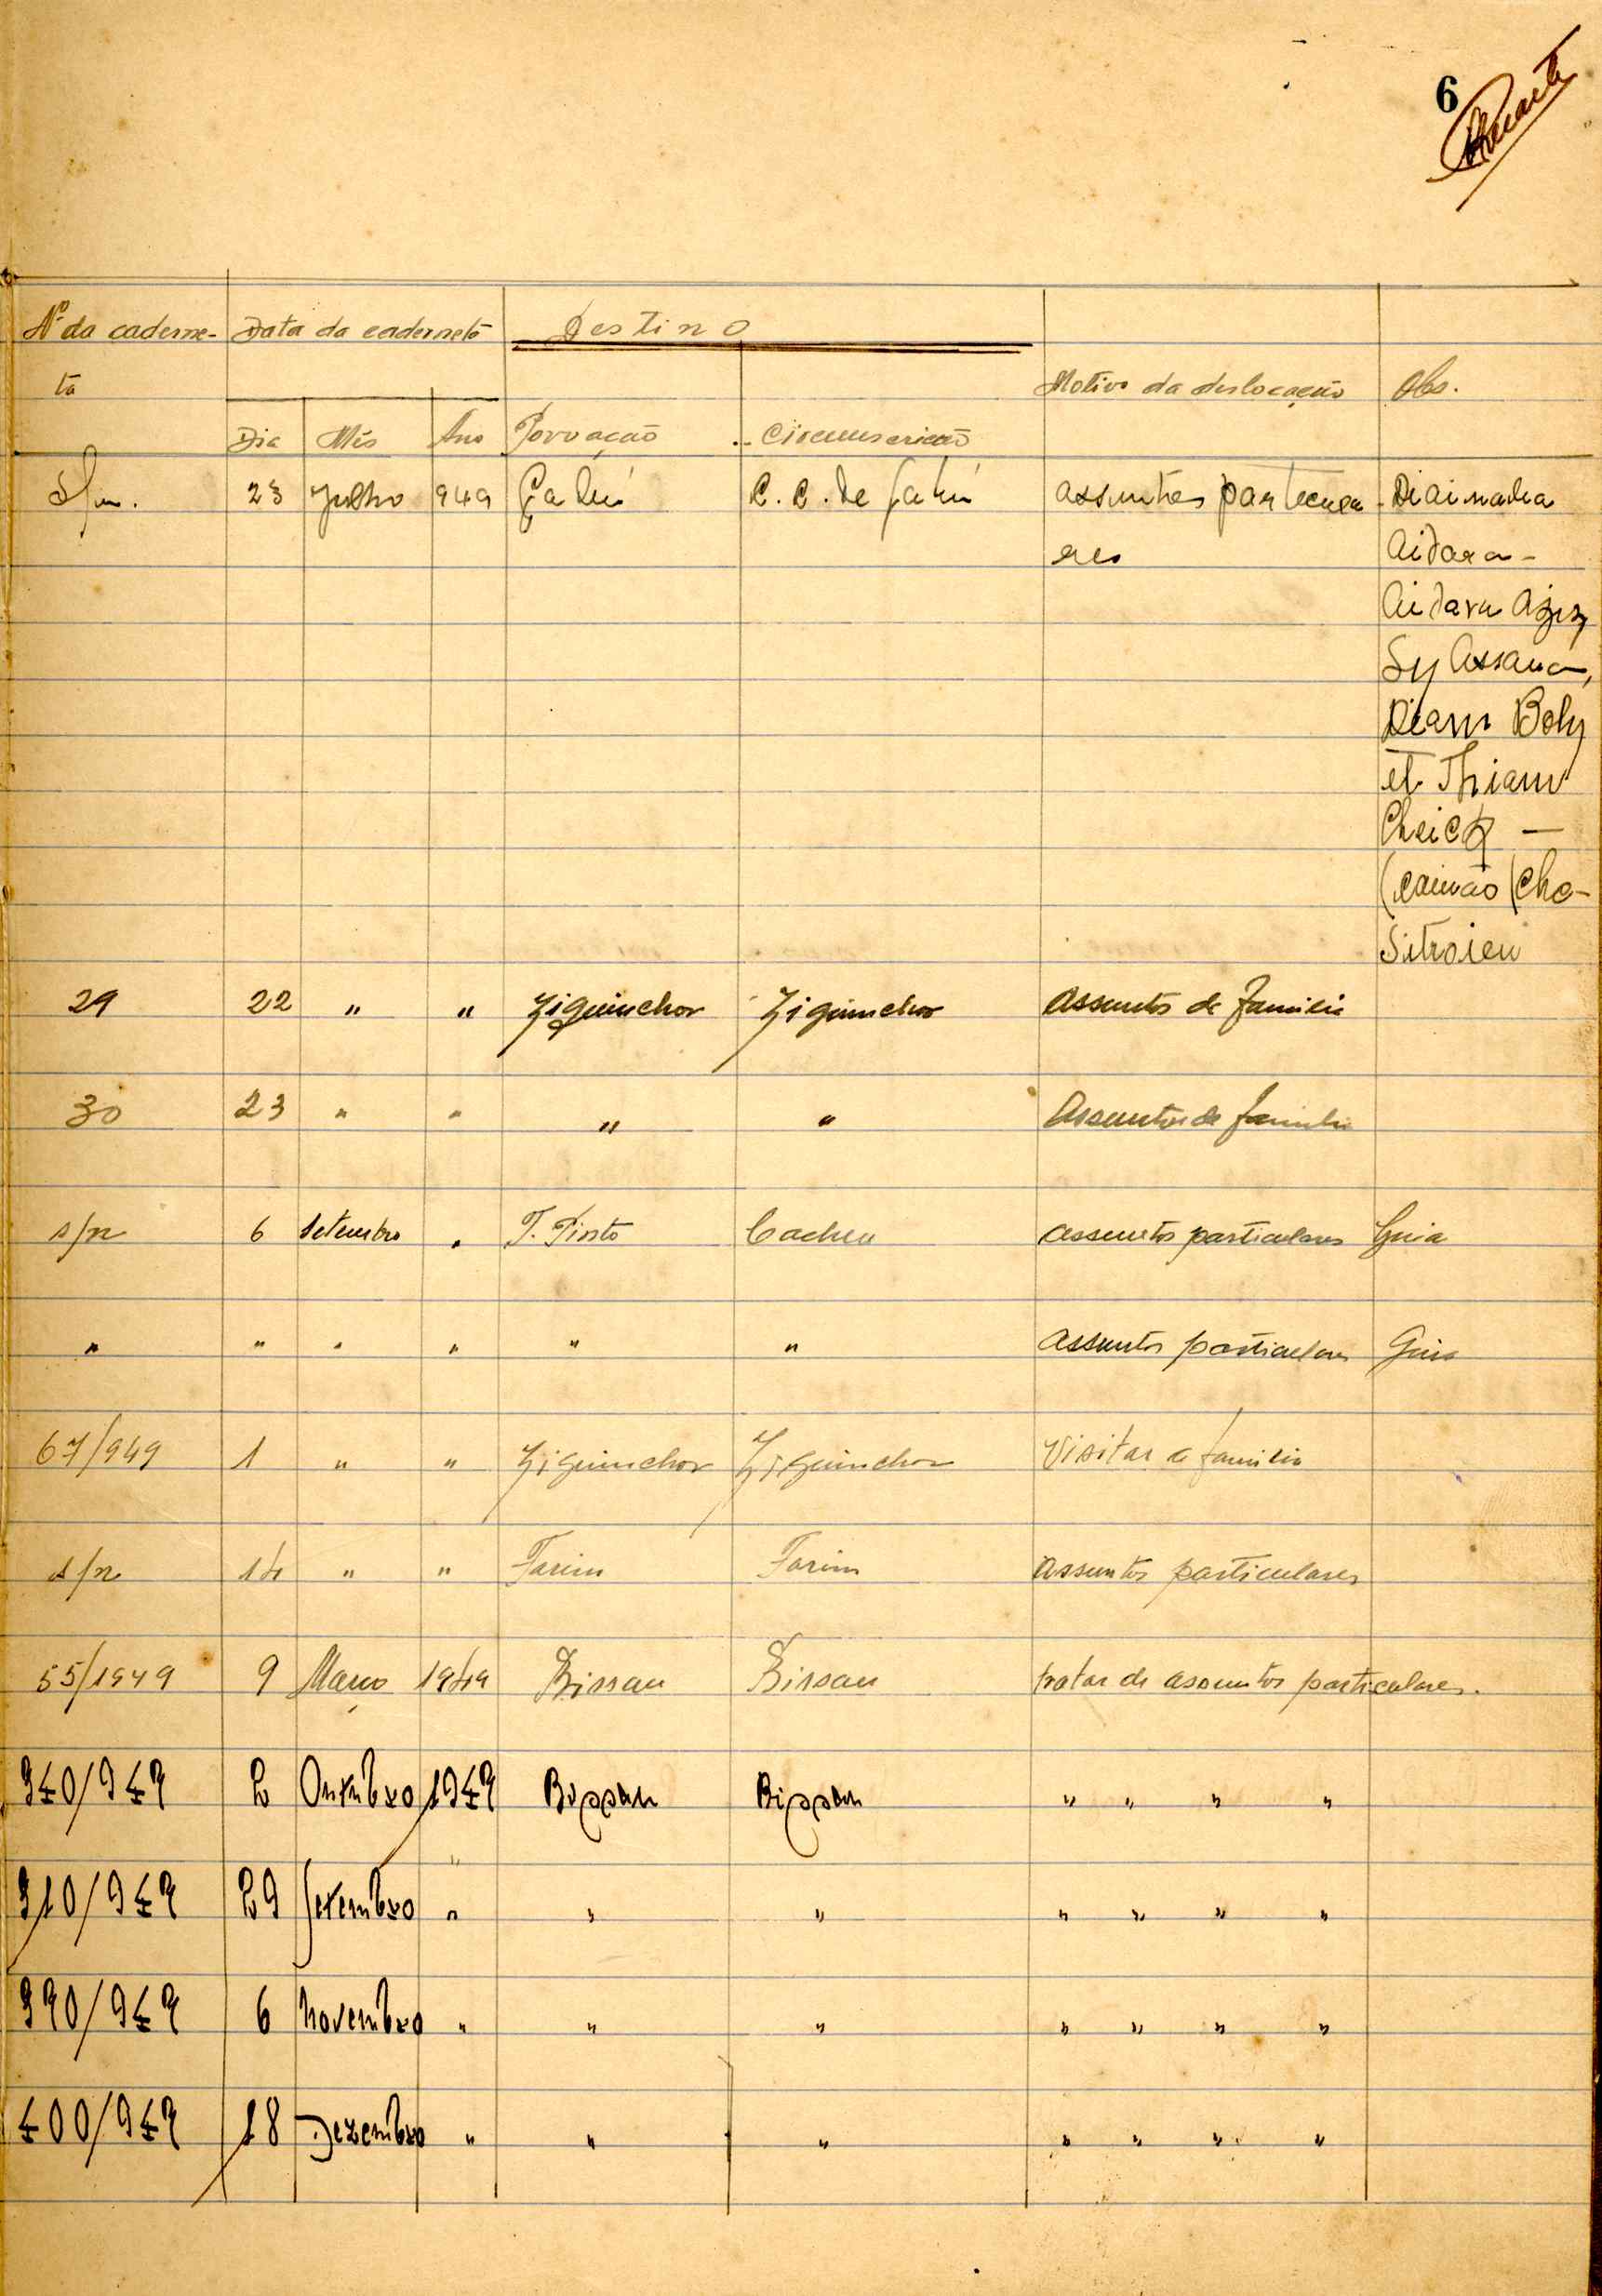 6
Nº da caderne- Data da caderneta Destino
ta Motivo da deslocação Obs.
Dia Mês Ano Povoação Circunscrição
S/n. 23 Julho 949 Gabú C. C. de Gabú assuntos particula- Diaimaha
res Aidara -
Aidara
Sy Assana,
Diam Boly
et Thiam
Cheick —
(camião (Che-
Sitroien
29 22 " " Ziguinchor Ziguinchor Assuntos de familia
30 23 " " " " Assuntos de familia
s/n 6 Setembro " T. Pinto Cacheu assuntos particulares Guia
" " " " " " Assuntos particulares Guia
67/949 1 " " Ziguinchor Ziguinchor Visitar a familia
s/n 14 " " Farim Farim Assuntos particulares
55/1949 9 Março 1949 Bissau Bissau tratar de assuntos particulares.
340/949 2 Outubro 1949 Bissau Bissau " " " "
310/949 29 Setembro " " " " " " "
390/949 6 Novembro " " " " " " "
400/949 18 Dezembro " " " " " " "